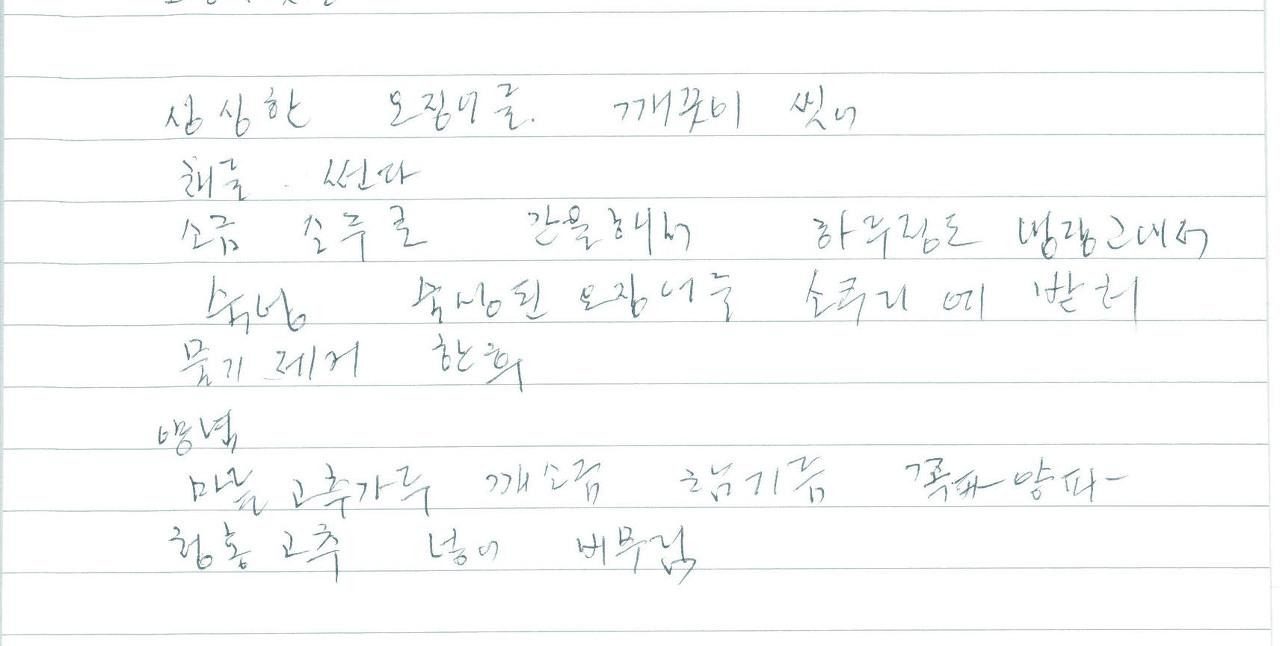 싱싱한 오징어를. 깨끗이 씻어
채를. 썬다
소금 소주로 간을해서 하루정도 냉장고에서
숙성 숙성된 오징어를 소쿠리에 받처
물기 제거 한후
양념
마늘 고추가루 깨소금 참기름 쪽파 양파
청홍고추 넣어 버무림